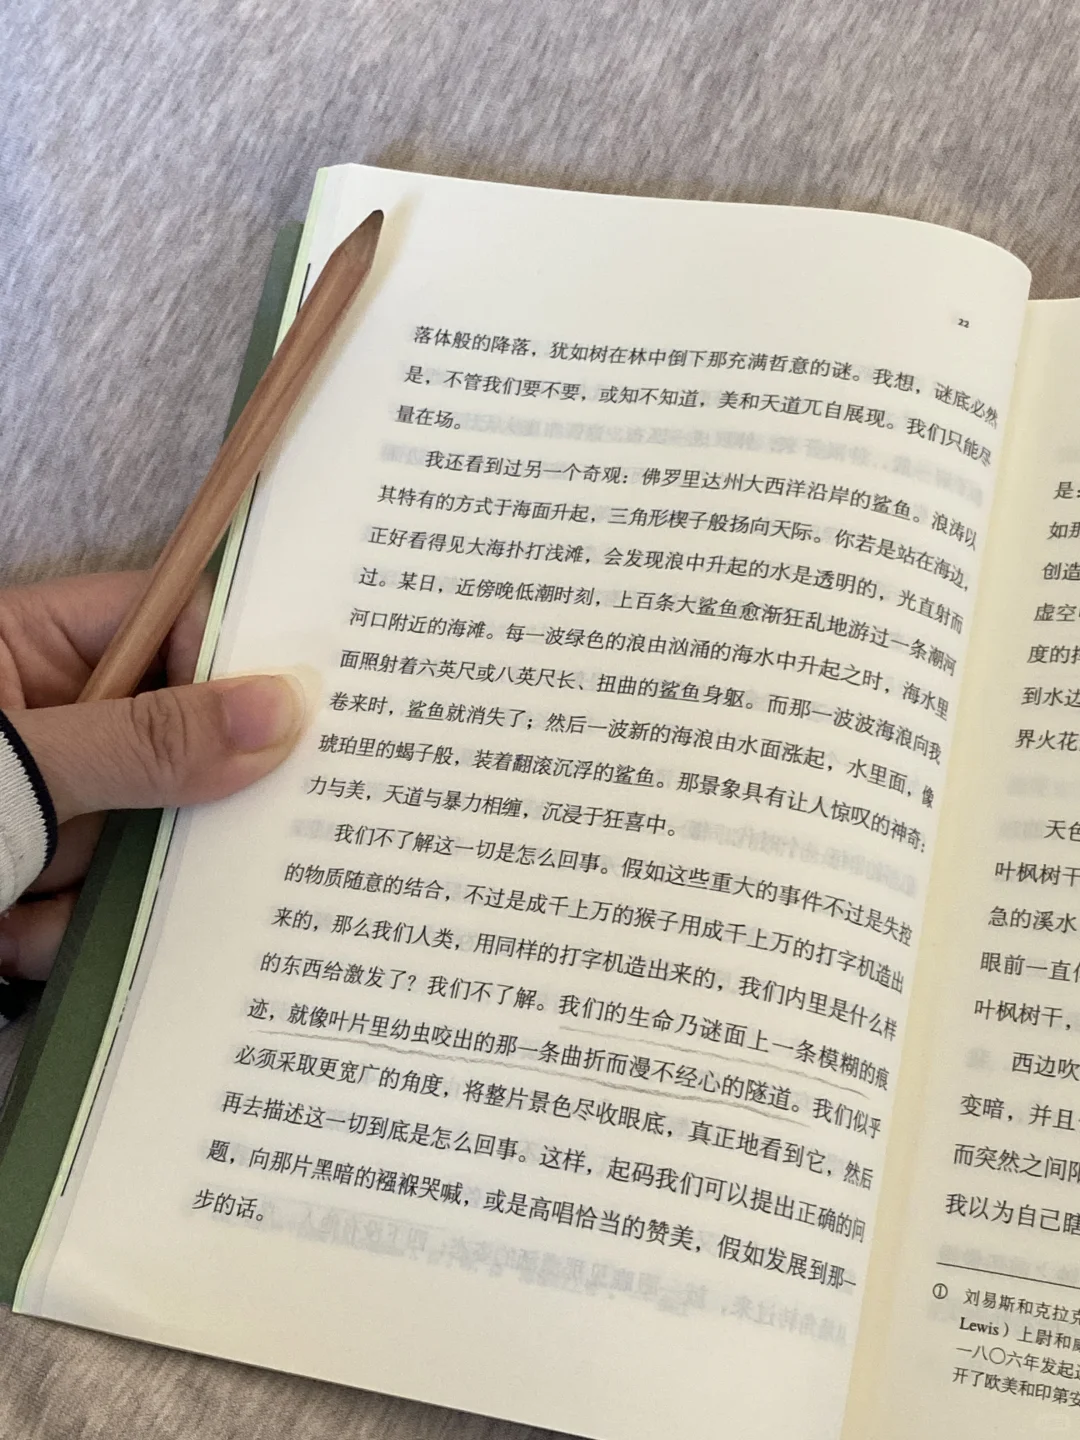 22
落体般的降落，犹如树在林中倒下那充满哲意的谜。我想，谜底必然
是，不管我们要不要，或知不知道，美和天道兀自展现。我们只能尽
量在场。
我还看到过另一个奇观：佛罗里达州大西洋沿岸的鲨鱼。浪涛以
其特有的方式于海面升起，三角形楔子般扬向天际。你若是站在海边，
正好看得见大海扑打浅滩，会发现浪中升起的水是透明的，光直射而
过。某日，近傍晚低潮时刻，上百条大鲨鱼愈渐狂乱地游过一条潮河
河口附近的海滩。每一波绿色的浪由汹涌的海水中升起之时，海水里
面照射着六英尺或八英尺长、扭曲的鲨鱼身躯。而那一波波海浪向我
卷来时，鲨鱼就消失了；然后一波新的海浪由水面涨起，水里面，像
琥珀里的蝎子般，装着翻滚沉浮的鲨鱼。那景象具有让人惊叹的神奇：
力与美，天道与暴力相缠，沉浸于狂喜中。
我们不了解这一切是怎么回事。假如这些重大的事件不过是失控
的物质随意的结合，不过是成千上万的猴子用成千上万的打字机造出
来的，那么我们人类，用同样的打字机造出来的，我们内里是什么样
的东西给激发了？我们不了解。我们的生命乃谜面上一条模糊的痕
迹，就像叶片里幼虫咬出的那一条曲折而漫不经心的隧道。我们似乎
必须采取更宽广的角度，将整片景色尽收眼底，真正地看到它，然后
再去描述这一切到底是怎么回事。这样，起码我们可以提出正确的问
题，向那片黑暗的襁褓哭喊，或是高唱恰当的赞美，假如发展到那一
步的话。
是
如那
创造
虚空
度的
到水边
界火花
天色
叶枫树干
急的溪水
眼前一直
叶枫树干，
西边吹
变暗，并且
而突然之间
我以为自己瞎
① 刘易斯和克拉克
Lewis）上尉和
一八〇六年发起
开了欧美和印第安